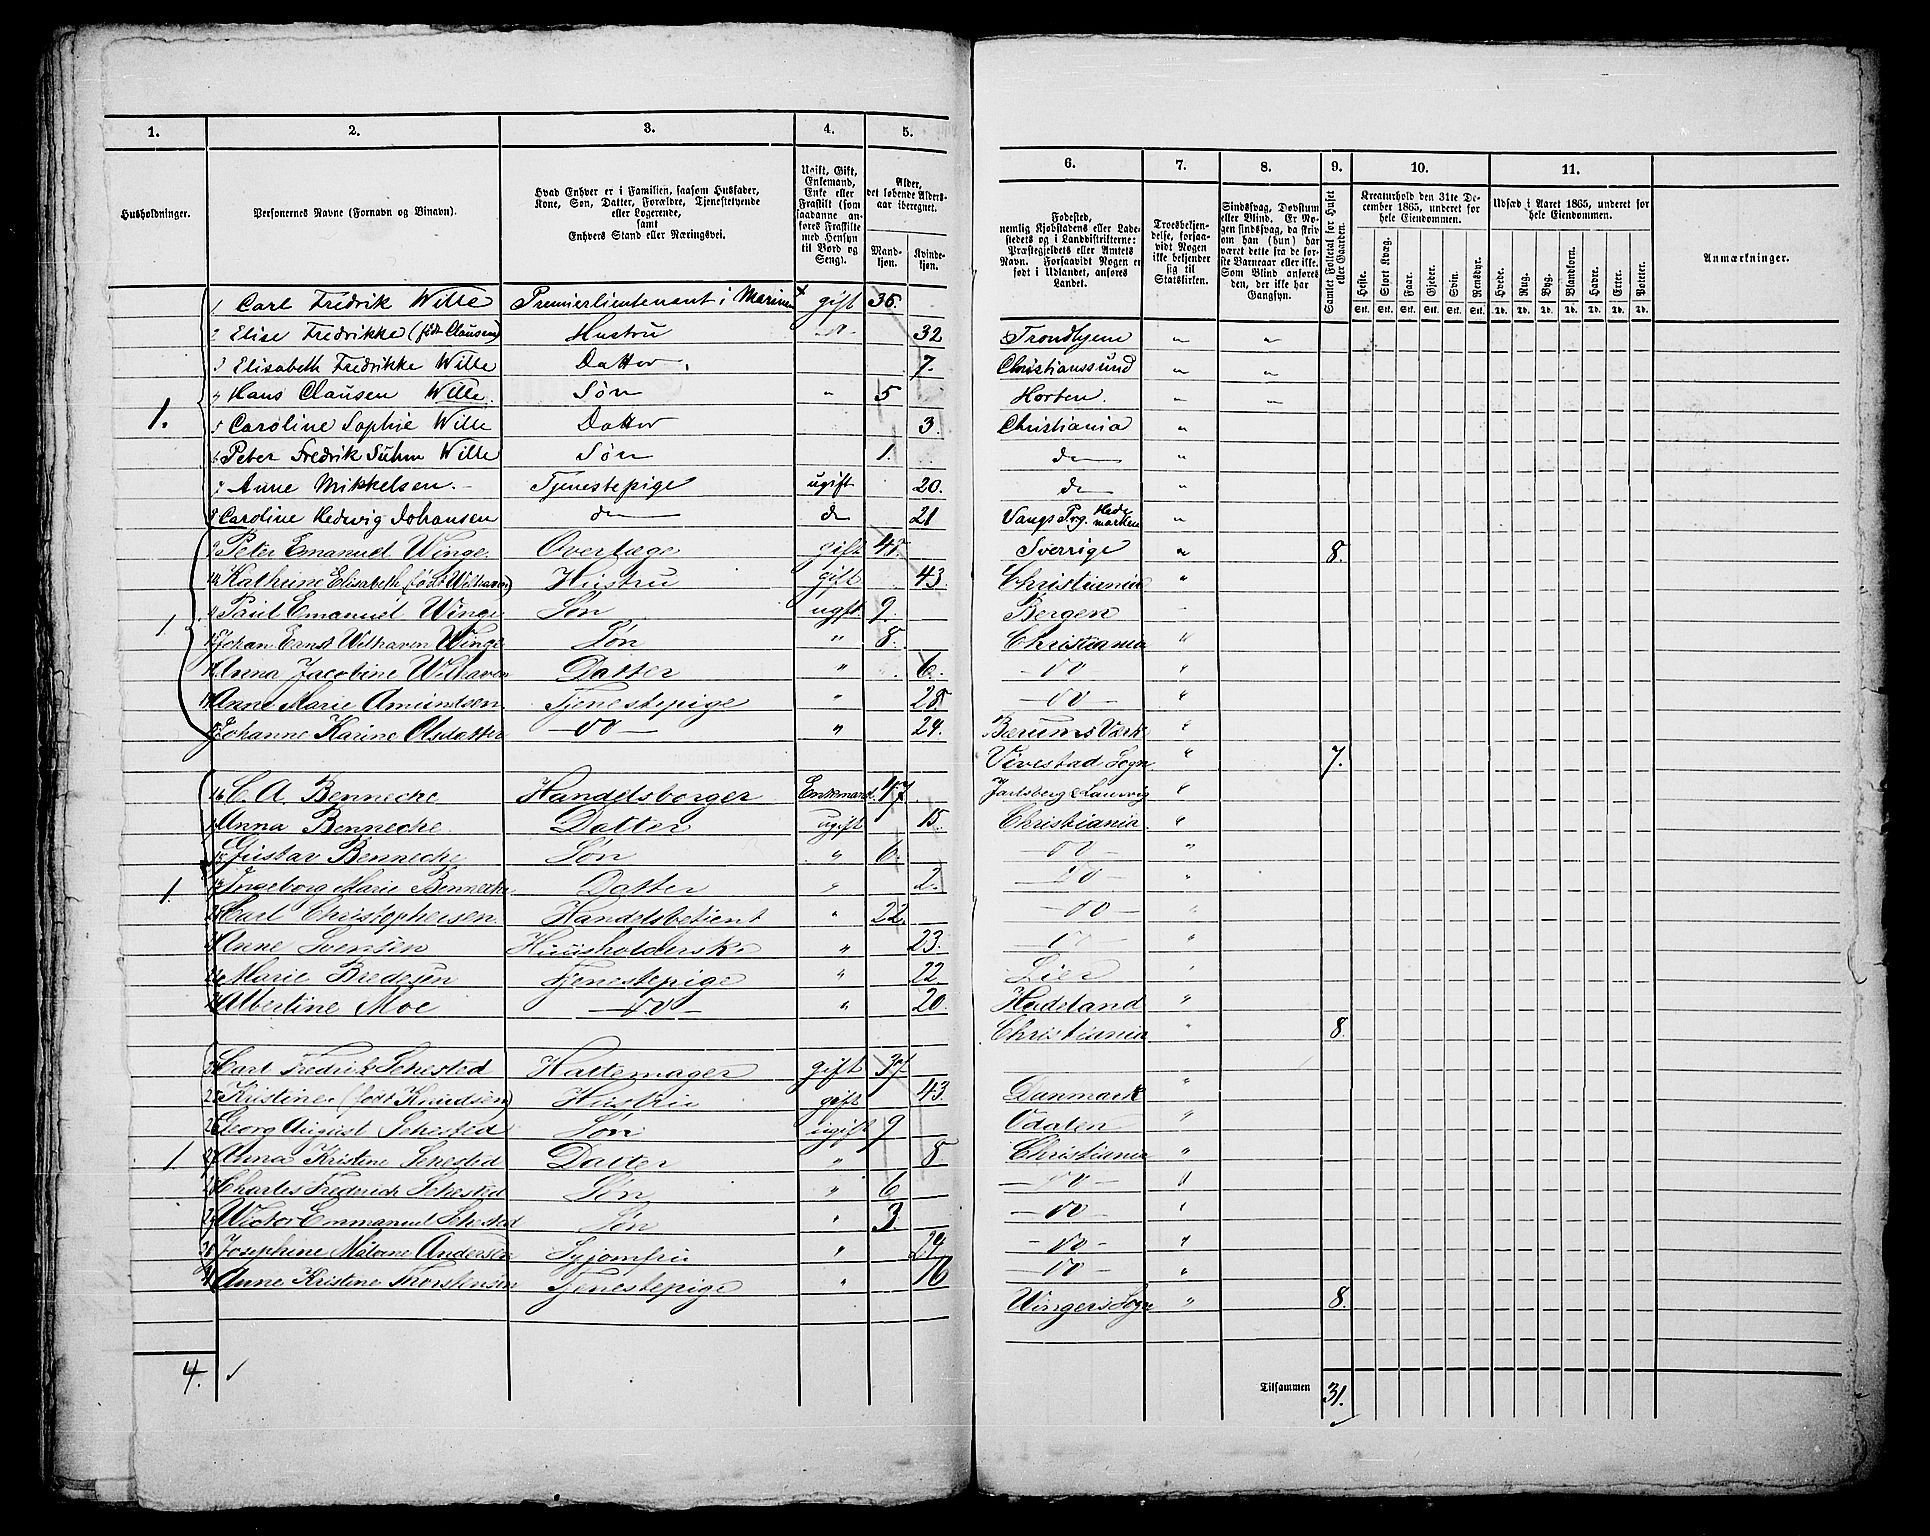 1. 2. 3. 4. 5.
Husholdninger.
Personernes Navne (Fornavn og Binavn).
Hvad Enhver er i Familien, saasom Husfader,
Kone, Søn, Datter, Forældre, Tjenestetyende
eller Logerende,
samt
Enhvers Stand eller Næringsvei.
Ugift, Gift,
Enkemand,
Enke eller
Fraskilt (som
saadanne an-
føres Fraskilte
med Hensyn
til Bord og
Seng).
Alder,
det løbende Alders-
aar iberegnet.
Mand-
kjøn.
Kvinde-
kjøn.
1 Carl Fredrik Wille Premierlieutenant i Marinen gift 36.
2 Elise Fredrikke (født Clausen) Hustru 32
3 Elisabeth Fredrikke Wille Datter 7.
4 Hans Clausen Wille. Søn " 5
1. 5 Caroline Sophie Wille Datter 3.
6 Peter Fredrik Suhm Wille Søn 1.
7 Anne Mikkelsen. Tjenestepige ugift 20.
8 Caroline Hedevig Johansen do do 21
9 Peter Emanuel Winge. Overlæge gift
10 Kathrine Elisabeth (født Welhaven) Hustru gift 43.
11 Paul Emanuel Winge Søn ugift 9.
1 12 Johan Ernst Welhaven Winge Søn " 8.
13 Anna Jacobine Welhaven Datter " 6.
14 Anne Marie Amundsen Tjenestepige " 28
15 Johanne Karine Olsdatter — do — " 24.
16 C. A. Bennecke Handelsborger Enkemand 47.
17 Anna Bennecke. Datter ugift 15.
18 Gustav Bennecke Søn " 6.
1. 19 Ingeborg Marie Bennecke Datter " 2.
20 Carl Christophersen. Handelsbetjent " 22
21 Anne Svensen Huusholderske " 23.
22 Marie Bredesen Tjenestepige " 22
23 Albertine Moe — do — " 20.
24 Carl Fredrik Sehested Hattemager gift 37
25 Kristine (født Knudsen) Hustru gift 43.
26 Georg August Sehested Søn ugift 9
1. 27 Anna Kristine Sehested Datter " 8
28 Charles Frederich Sehested Søn " 6
29 Wictor Emmanuel Sehested Søn " 3.
30 Josephine Andersen Syjomfru " 24
31 Anne Kristine Thorstensen Tjenestepige " 16
4.
6. 7. 8. 9. 10. 11.
Fødested,
nemlig Kjøbstadens eller Lade-
stedets og i Landdistrikterne:
Præstegjeldets eller Amtets
Navn. Forsaavidt Nogen er
født i Udlandet, anføres
Landet.
Troesbekjen-
delse, forsaa-
vidt Nogen
ikke bekjender
sig til
Statskirken.
Sindssvag, Døvstum
eller Blind. Er No-
gen sindssvag, da skriv
om han (hun) har
været dette fra de før-
ste Barneaar eller ikke.
Som Blind anføres
den, der ikke har
Gangsyn.
Samlet Folketal for Huset
eller Gaarden.
Kreaturhold den 31te De-
cember 1865, underet for
hele Eiendommen.
Heste. Stort Kvæg. Faar. Gjeder. Svin. Rensdyr.
Stk. Stk. Stk. Stk. Stk. Stk.
Udsæd i Aaret 1865, underet for
hele Eiendommen.
Hvede. Rug. Byg. Blandkorn. Havre. Erter. Poteter.
Td. Td. Td. Td. Td. Td. Td.
Anmærkninger.
Trondhjem " "
Christianssund " "
Horten. " "
Christiania "
do "
do "
Vangs Prg. Hedemarken "
Sverrige " 8.
Christiania "
Bergen
Christiania "
— do — "
— do — "
Bærums Værk "
Vivestad Sogn " 7.
Jarlsberg & Laurvig "
Christiania "
— do — "
— do — "
— do — "
— do — "
Lier "
Hadeland "
Christiania " 8.
"
Danmark
Odalen "
Christiania "
— do — "
— do — "
— do — "
— do — "
Vingers Sogn " 8.
Tilsammen 31.